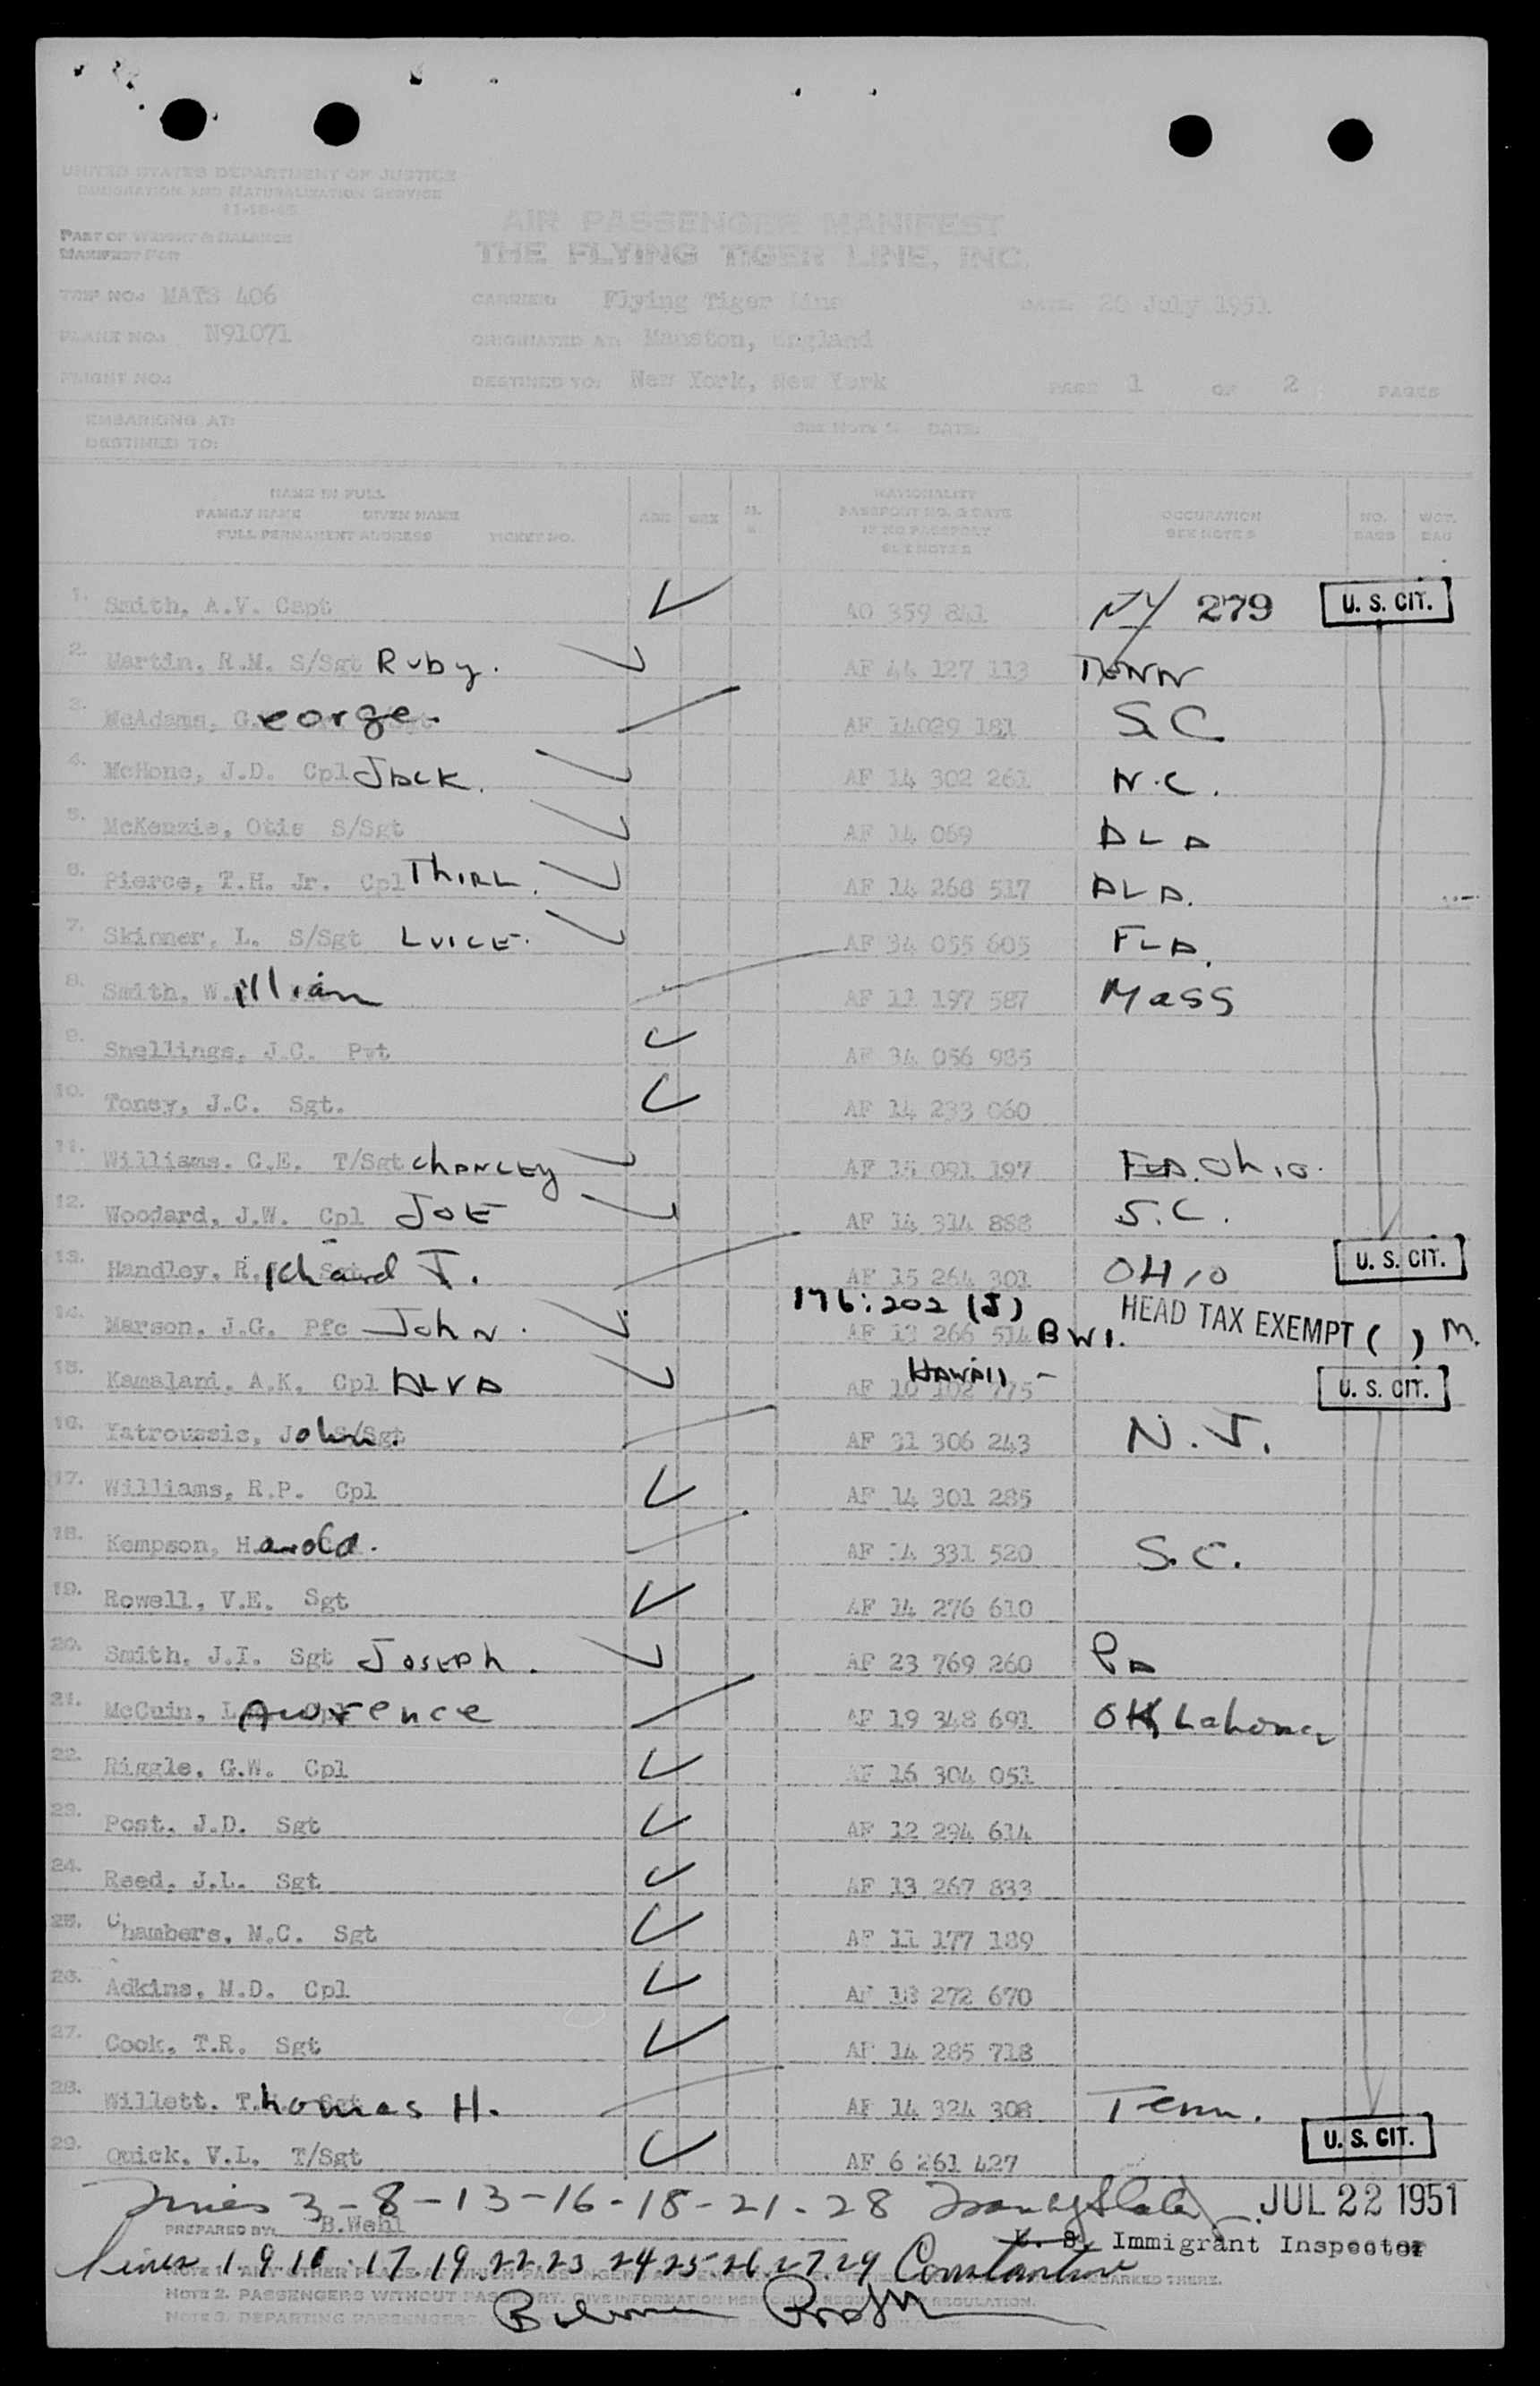 UNITED STATES DEPARTMENT OF JUSTICE
IMMIGRATION AND NATURALIZATION SERVICE
11-18-45
PART OF WEIGHT & BALANCE
MANIFEST FOR
AIR PASSENGER MANIFEST
THE FLYING TIGER LINE, INC.
TRIP NO.: MATS 406 CARRIER: Flying Tiger Line DATE: 20 July 1951
PLANE NO.: N91071 ORIGINATED AT: Manston, England
FLIGHT NO.: DESTINED TO: New York, New York PAGE 1 OF 2 PAGES
EMBARKING AT: SEE NOTE 1: DATE:
DESTINED TO:
NAME IN FULL
FAMILY NAME GIVEN NAME
FULL PERMANENT ADDRESS TICKET NO.
AGE SEX
NATIONALITY
PASSPORT NO. & DATE
IF NO PASSPORT
SEE NOTE 2
OCCUPATION
SEE NOTE 3
NO. BAGS
WGT. BAG
1. Smith, A.V. Capt AO 359 841 NY 279 U. S. CIT.
2. Martin, R.M. S/Sgt Ruby. AF 44 127 113 TENN
3. McAdams, George. AF 14029 181 S.C
4. McHone, J.D. Cpl JACK. AF 14 302 261 N.C.
5. McKenzie, Otis S/Sgt AF 14 069 ALA
6. Pierce, T.H. Jr. Cpl THIRL. AF 14 268 517 ALA.
7. Skinner, L. S/Sgt LUICE. AF 34 055 605 FLA.
8. Smith, William AF 11 197 587 Mass
9. Snellings, J.C. Pvt AF 34 056 985
10. Toney, J.C. Sgt. AF 14 233 060
11. Williams. C.E. T/Sgt CHANCEY AF 15 091 197 FLA. Ohio.
12. Woodard, J.W. Cpl JOE AF 14 314 888 S.C.
13. Handley, Richard J. AF 15 264 301 OHIO U. S. CIT.
14. Marson, J.G. Pfc John. 176:202 (J) AF 13 266 514 BWI. HEAD TAX EXEMPT ( ) M.
15. Kamalani, A.K. Cpl ALVA AF 10 102 775 HAWAII - U. S. CIT.
16. Yatroussis, John. S/Sgt AF 31 306 243 N.J.
17. Williams, R.P. Cpl AF 14 301 285
18. Kempson, Harold. AF 14 331 520 S.C.
19. Rowell, V.E. Sgt AF 14 276 610
20. Smith, J.I. Sgt JOSEPH. AF 23 769 260 PA
21. McCuin, Lawrence AF 19 348 691 OKLahoma
22. Riggle, G.W. Cpl AF 16 304 051
23. Post, J.D. Sgt AF 12 294 614
24. Reed, J.L. Sgt AF 13 267 833
25. Chambers, N.C. Sgt AF 11 177 189
26. Adkins, M.D. Cpl AF 18 272 670
27. Cook, T.R. Sgt AF 14 285 718
28. Willett. Thomas H. AF 14 324 308 Tenn.
29. Quick, V.L. T/Sgt AF 6 261 427 U. S. CIT.
3-8-13-16-18-21-28 JUL 22 1951
PREPARED BY: B.Wehl U. S. Immigrant Inspector
Lines 1. 9. 10. 17 19. 22. 23 24 25 26. 27. 29
NOTE 2. PASSENGERS WITHOUT PASSPORT. GIVE INFORMATION REGULATION.
NOTE 3. DEPARTING PASSENGERS